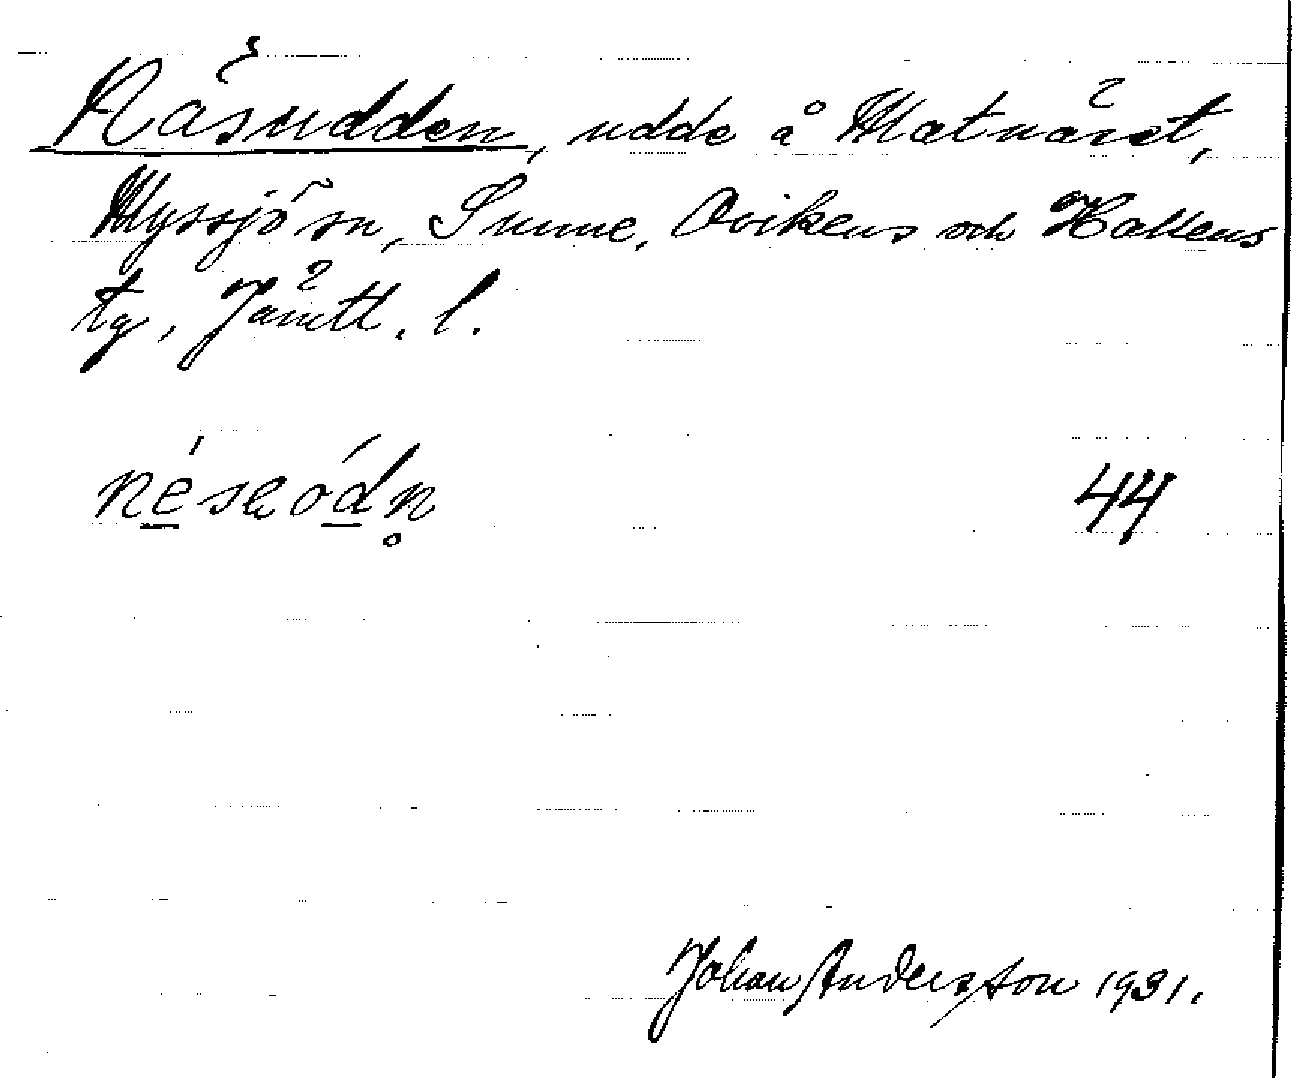 Näsudden, udde å Matnäset,
Myssjö sn, Sunne, Ovikens och Hallens
tg, Jämtl. l.
44
Johan Andersson 1931.